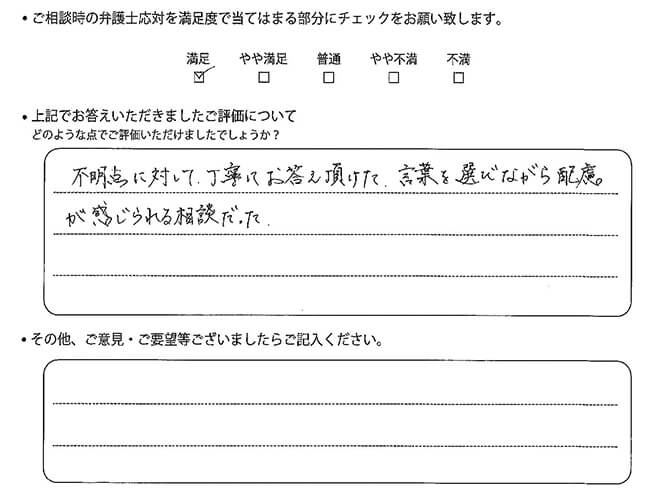 ・ご相談時の弁護士応対を満足度で当てはまる部分にチェックをお願い致します。
満足 やや満足 普通 やや不満 不満
・上記でお答えいただきましたご評価について
どのような点でご評価いただけましたでしょうか?
不明点に対して、丁寧にお答え頂けた、言葉を選びながら配慮
が感じられる相談だった、
・その他、ご意見・ご要望等ございましたらご記入ください。